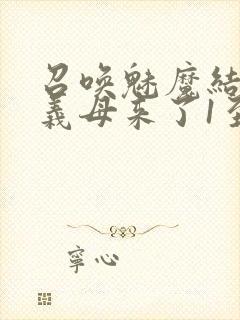 召唤魅魔结
義母来了1至
寧心